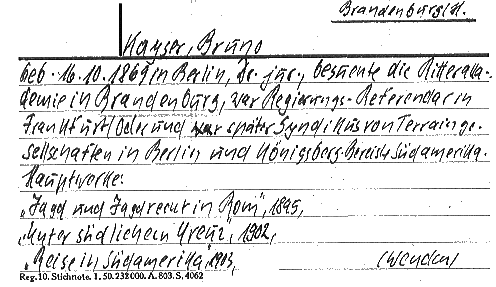 Brandenburg/H.
Kayser, Bruno
Geb. 16.10.1869 in Berlin, Dr. jur., besuchte die Ritteraka-
demie in Brandenburg, war Regierungs-Referendar in
Frankfurt/Oder und war später Syndikus von Terrainge-
sellschaften in Berlin und Königsberg. Bereiste Südamerika.
Hauptwerke:
„Jagd und Jagdrecht in Rom", 1895,
„Unter südlichem Kreuz", 1902,
„Reise in Südamerika" 1903,
(Wendon)
Reg. 10. Stichnote. 1. 50. 232000. A. 803. S. 4062